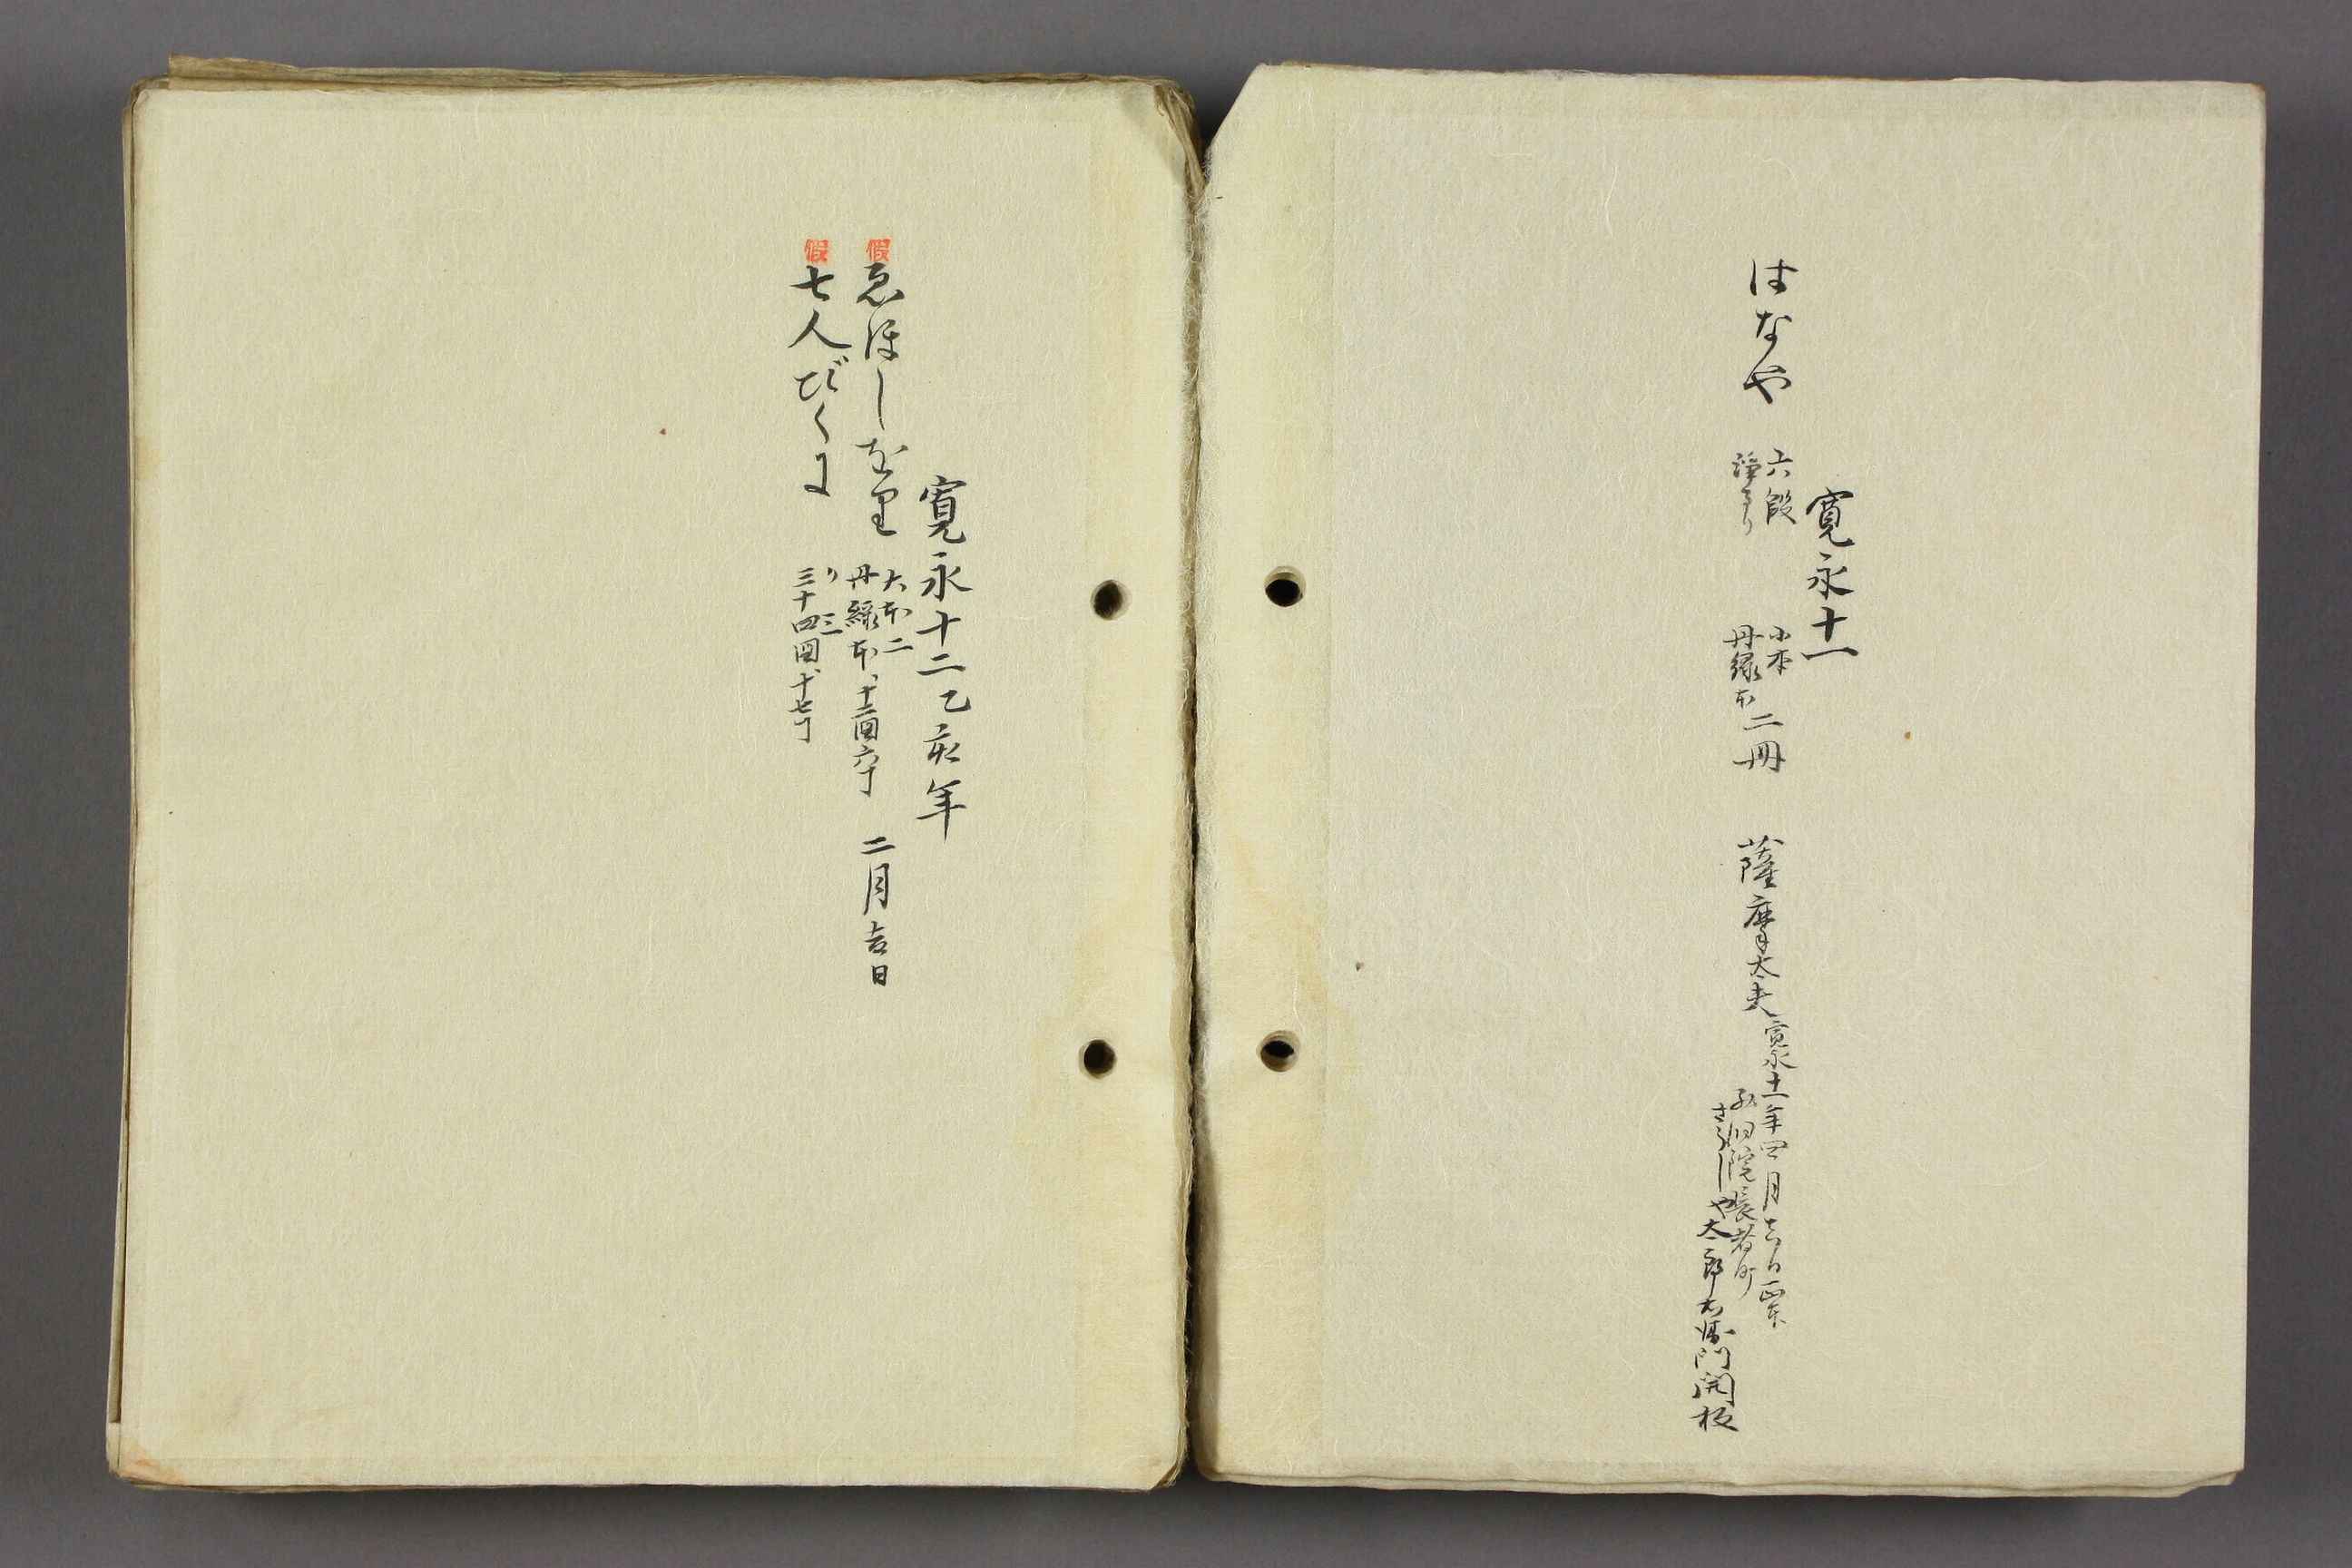 寛永十一
はなや
六段
浄るり
小本
丹緑本
二冊
薩摩太夫
寛永十一年四月吉日 正本
西洞院長者町
さうしや太郎右衛門開板
寛永十二乙亥年
假
ゑほしをり
大本二
丹緑本、十二図
二月吉日
假
七人びくに
〃 三
三十四図、十七丁